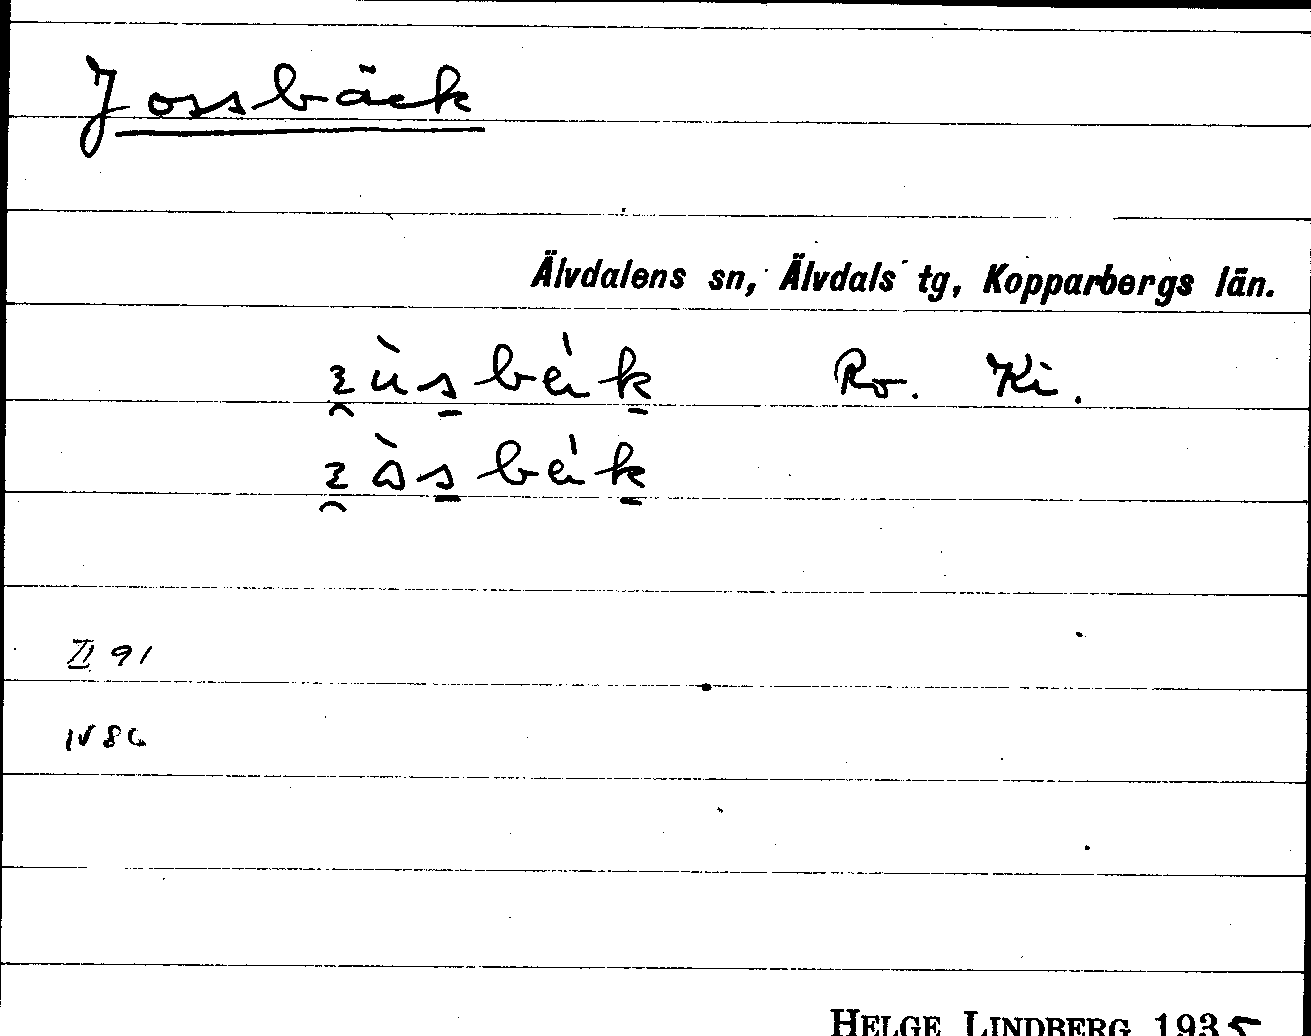 Jossbäck
Älvdalens sn, Älvdals tg, Kopparbergs län.
Ro. Ki.
II 91
IV 86
HELGE LINDBERG 1935